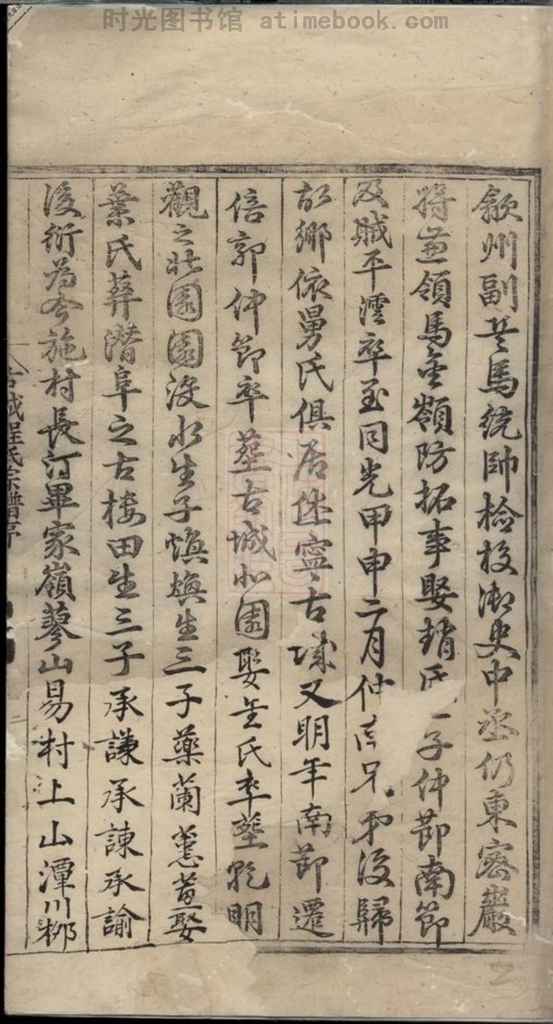 时光图书馆 - atimebook.com
歙州副兵馬統帥檢校御史中丞仍東密巖
將兼領馬金嶺防拓事娶趙氏 子仲節南節
及賊平澐卒至同光甲申二月仲 兄 後歸
故鄉依舅氏俱居休寧古城又明年南節遷
倍郭仲節卒葬古城北園娶金氏卒塟 明
觀之北園園沒水生子 生三子藥蘭蕙 娶
葉氏葬潛阜之古樓田生三子承謙承諫承諭
後衍為今施村長汀畢家嶺蓼山易村上山潭川柳
古城程氏宗譜序